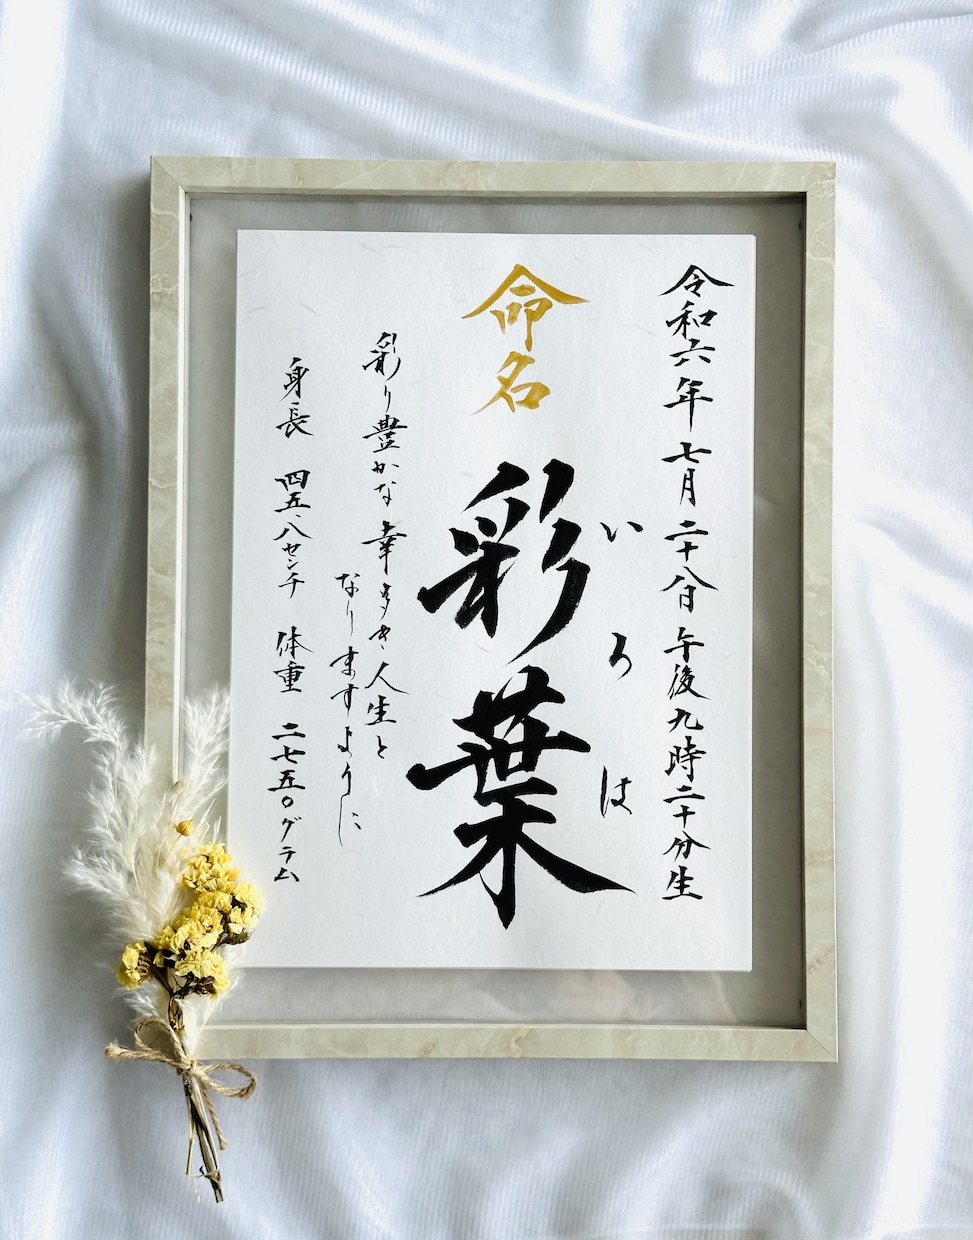 令和六年 七月 二十八日 午後九時二十分生
いろは
命名 彩葉
彩り豊かな 幸多き人生と
なりますように
身長 四五.八センチ 体重 二七五〇グラム